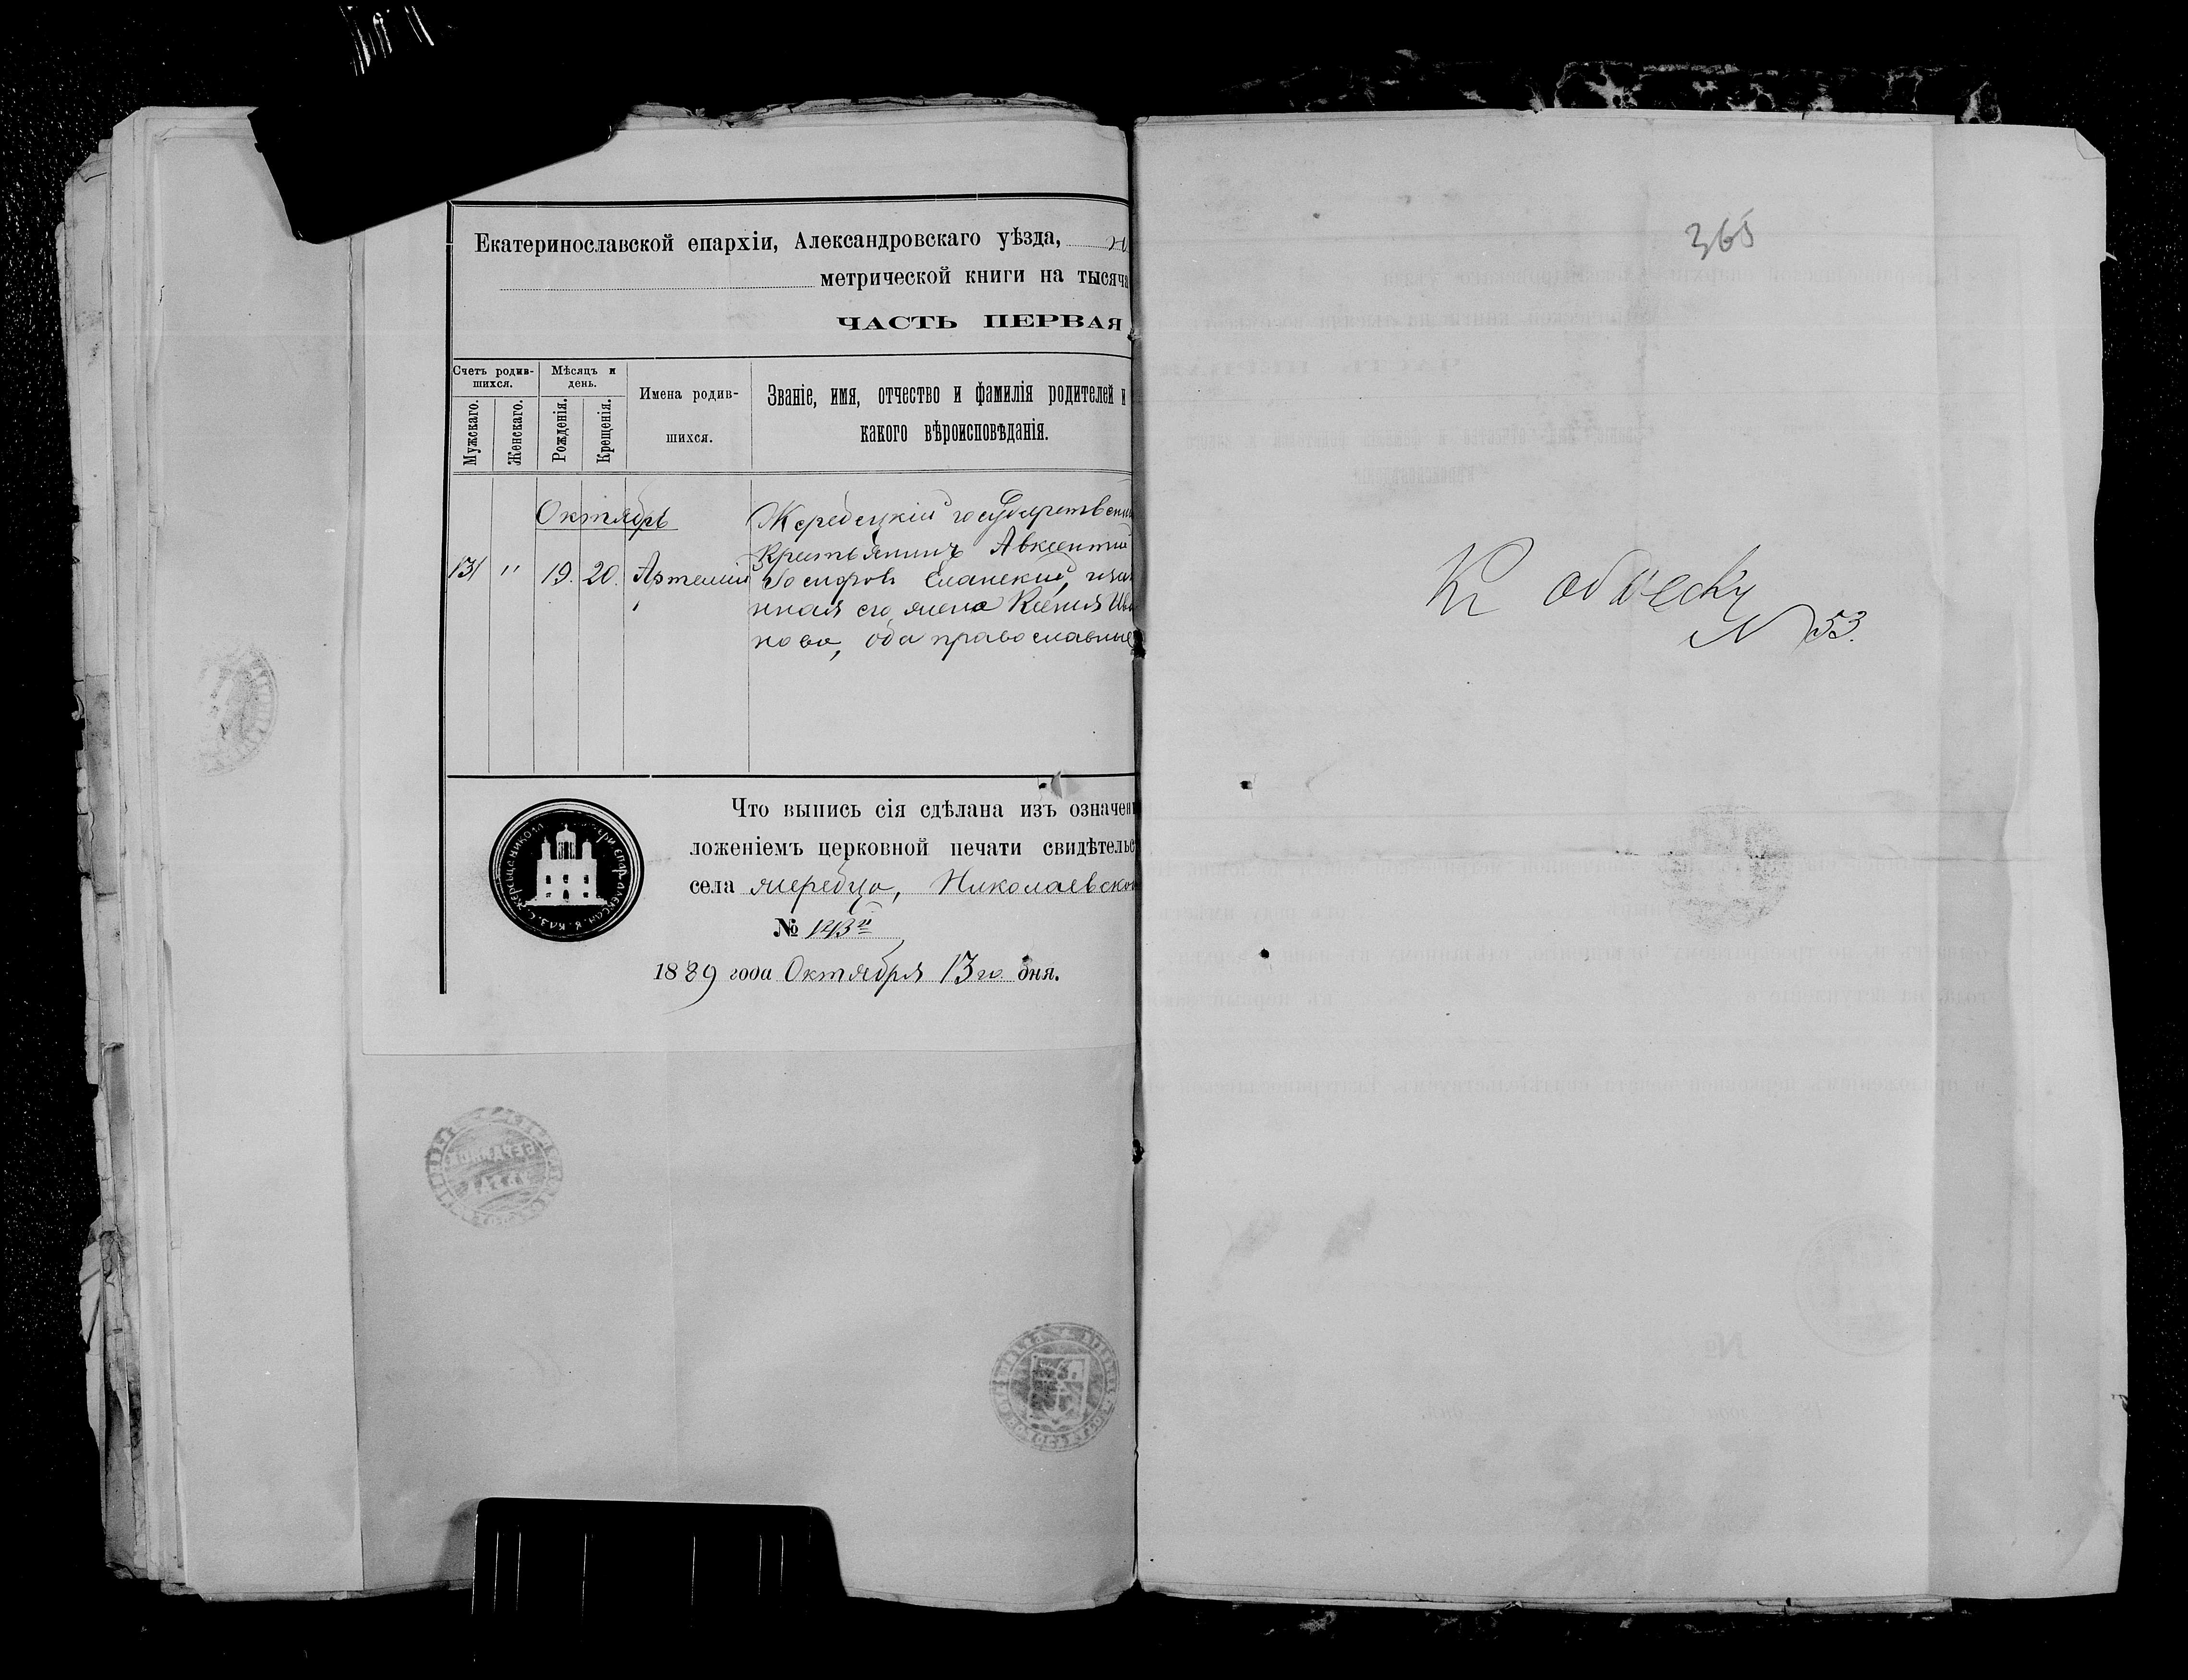 Екатеринославской епархіи, Александровскаго уѣзда,
метрической книги на тысяча
ЧАСТЬ ПЕРВАЯ
Счетъ родив-
шихся.
Мужскаго.
Женскаго.
Мѣсяцъ и
день.
Рожденія.
Крещенія.
Имена родив-
шихся.
Званіе, имя, отчество и фамилія родителей и
какого вѣроисповѣданія.
Октябрь
131 " 19. 20. Артемій
Жеребецкій государствен
крестьянинъ Авксентій
Іосифовъ Еланскій, и зак
нная его жена Ксенія Ива
нова, оба православные
Что выпись сія сдѣлана изъ означен
ложеніемъ церковной печати свидѣтельс
села Жеребца, Николаевской
№ 143й
1889 года Октября 13го дня.
365
Къ обыску
N 53.